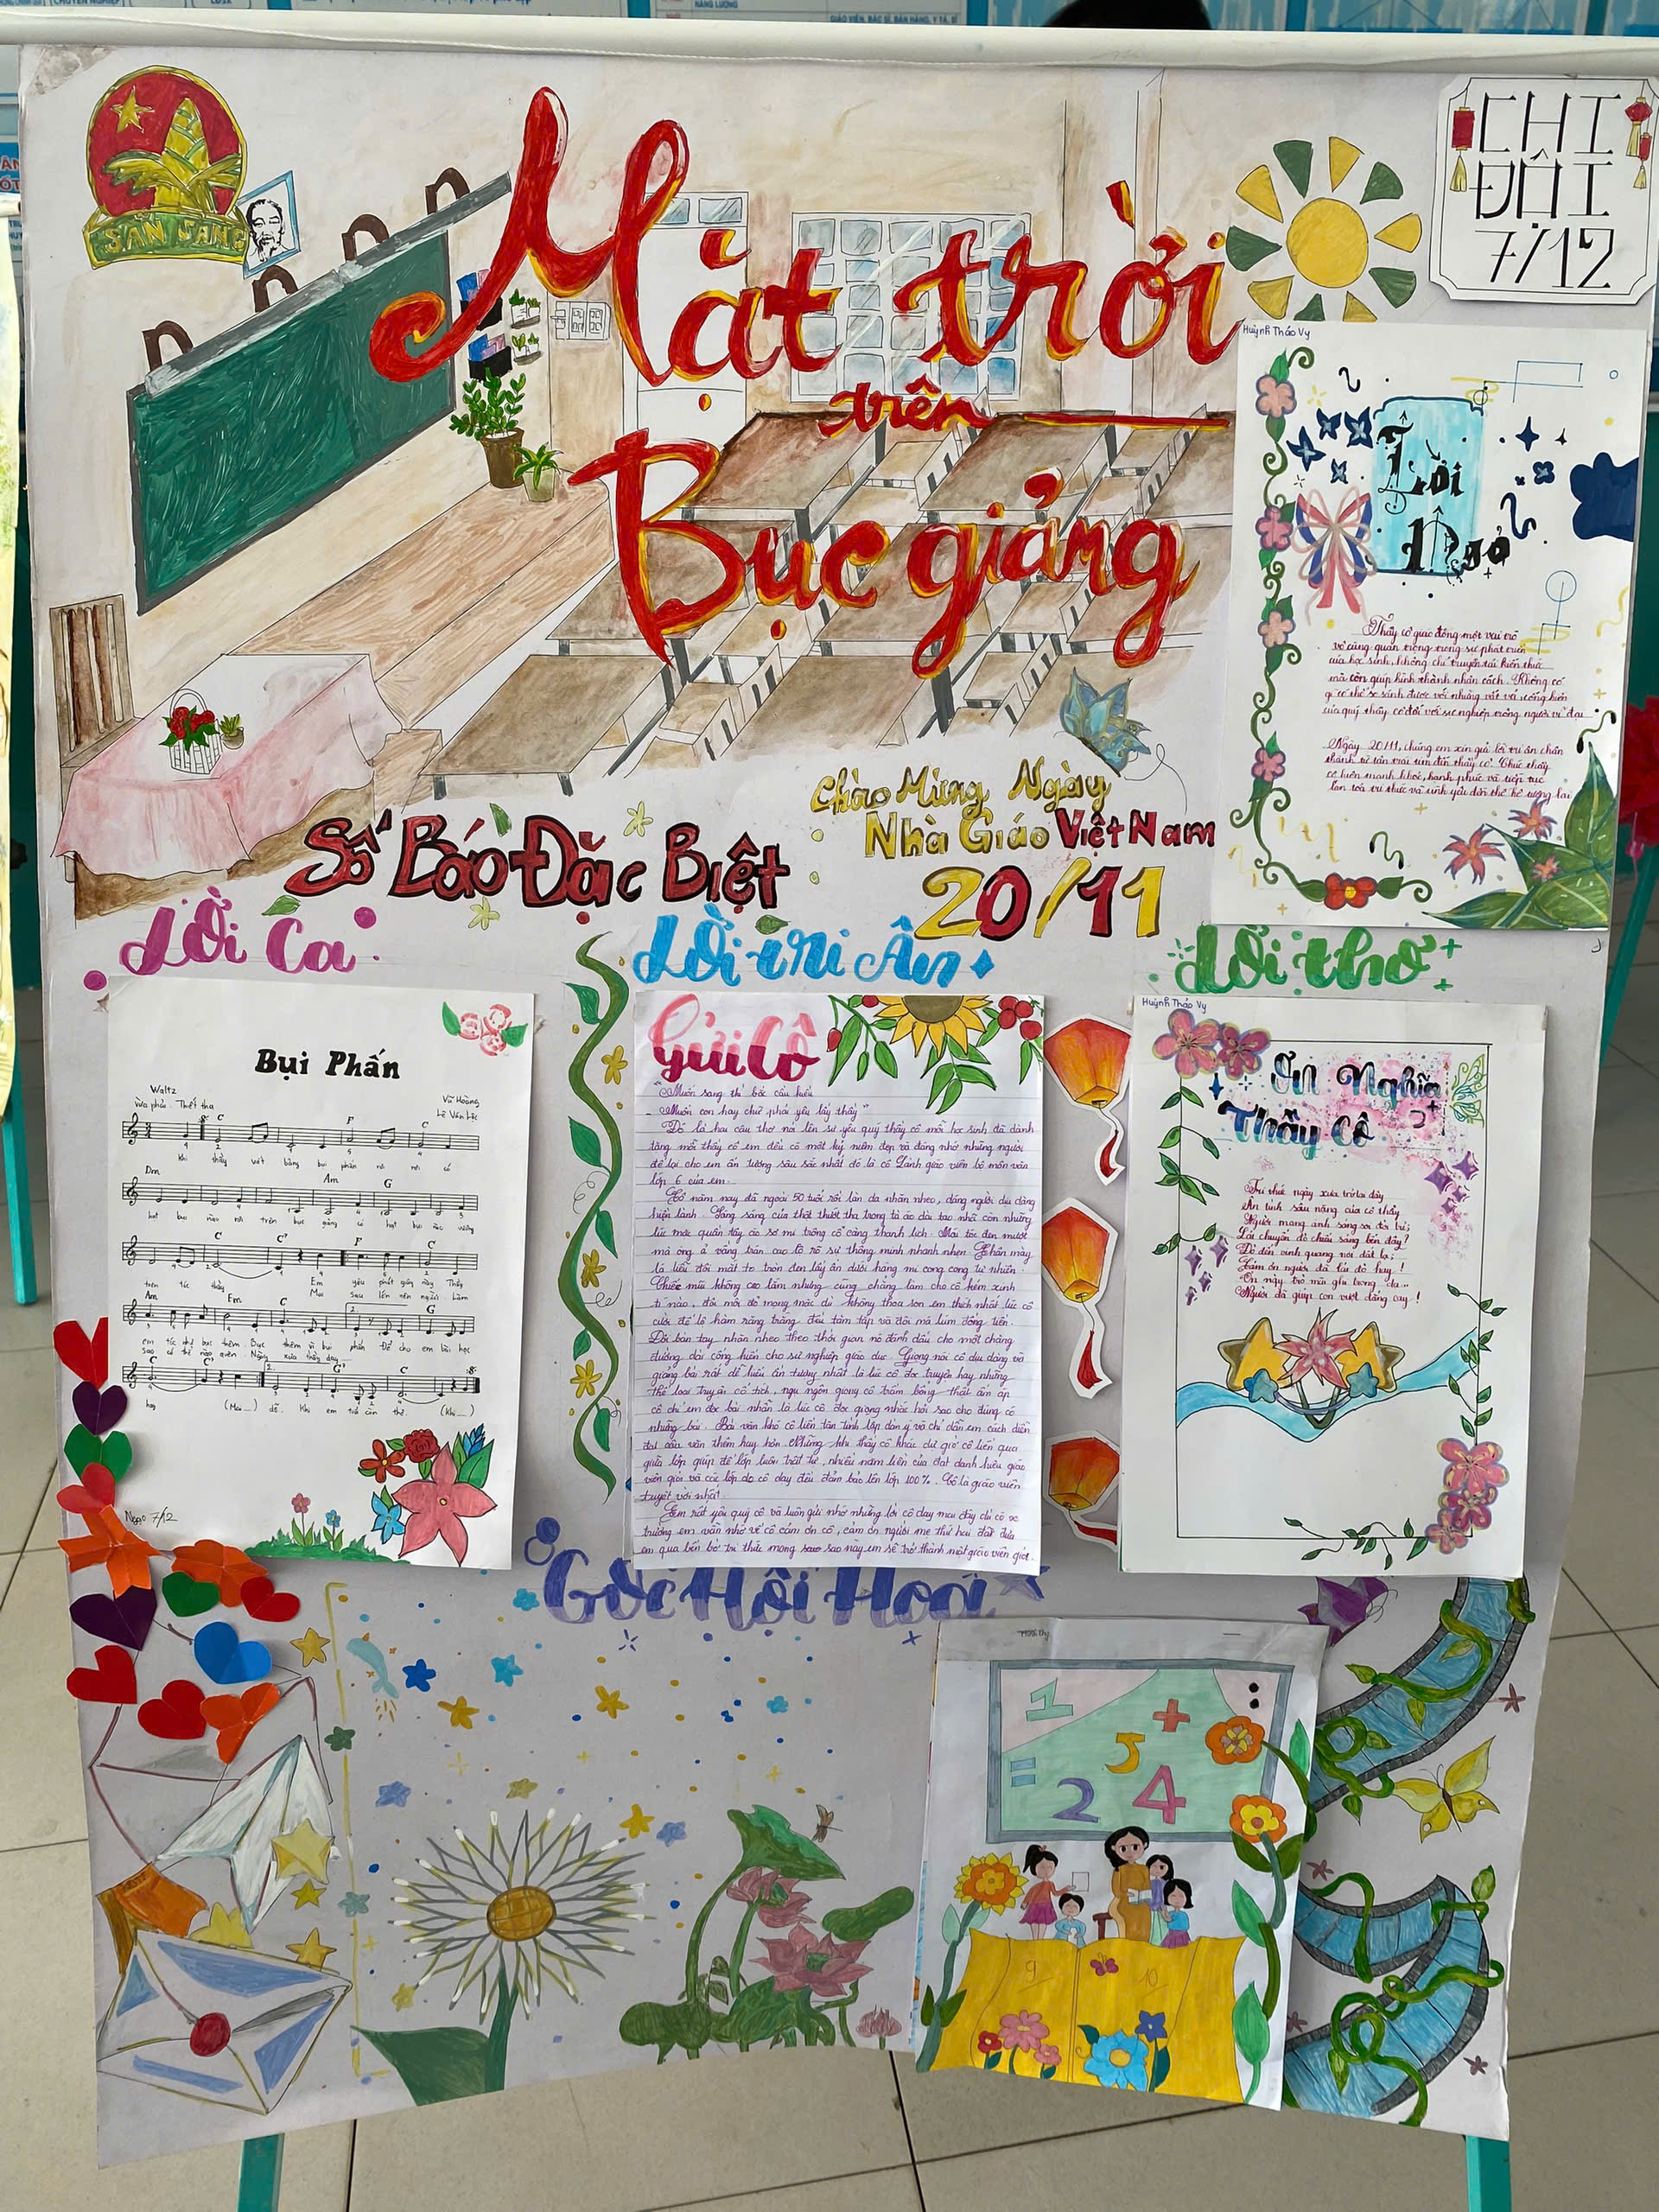 SẴN SÀNG
CHI
ĐỘI
7/12
Mặt trời
trên
Bục giảng
Huỳnh Thảo Vy
Lời
Ngỏ
Thầy cô giáo đóng một vai trò
vô cùng quan trọng trong sự phát triển
của học sinh, không chỉ truyền tải kiến thức
mà còn giúp hình thành nhân cách. Không có
gì có thể so sánh được với những vất vả, cống hiến
của quý thầy cô đối với sự nghiệp trồng người vĩ đại
Ngày 20/11, chúng em xin gửi lời tri ân chân
thành từ tận trái tim đến thầy cô. Chúc thầy
cô luôn mạnh khỏe, hạnh phúc và tiếp tục
lan tỏa tri thức và tình yêu đến thế hệ tương lai
Chào Mừng Ngày
Nhà Giáo Việt Nam
20/11
Số Báo Đặc Biệt
Lời Ca
Bụi Phấn
Waltz
Vừa phải - Thiết tha
Vũ Hoàng
Lê Văn Lộc
Khi thầy viết bảng bụi phấn rơi rơi có
hạt bụi nào rơi trên bục giảng có hạt bụi nào vương
trên tóc thầy Em yêu phút giây này Thầy
Mai sau lớn nên người Làm
em tóc như bạc thêm. Bạc thêm vì bụi phấn Để cho em bài học
sao có thể nào quên. Ngày xưa thầy dạy
hay (Mai ) dỗ. Khi em tuổi còn thơ. (Khi )
Ngao 7/12
Lời tri Ân
Gửi Cô
"Muốn sang thì bắc cầu kiều
- Muốn con hay chữ phải yêu lấy thầy"
Đó là hai câu thơ nói lên sự yêu quý thầy cô mỗi học sinh đã dành
tặng mỗi thầy cô em đều có một kỷ niệm đẹp và đáng nhớ những người
để lại cho em ấn tượng sâu sắc nhất đó là cô Lành giáo viên bộ môn văn
lớp 6 của em.
Cô năm nay đã ngoài 50 tuổi rồi làn da nhăn nheo, dáng người dịu dàng
hiện lành. Sáng sáng của thật thướt tha trong tà áo dài tao nhã còn những
lúc mặc quần tây áo sơ mi trông cô càng thanh lịch. Mái tóc đen mượt
mà óng ả vầng trán cao lộ rõ sự thông minh nhanh nhẹn. Chân mày
lá liễu đôi mắt to tròn đen láy ẩn dưới hàng mi cong cong tự nhiên.
Chiếc mũi không cao lắm nhưng cũng chẳng làm cho cô kém xinh
tí nào, đôi môi đỏ mọng mặc dù không thoa son em thích nhất lúc cô
cười để lộ hàm răng trắng đều tăm tắp và đôi má lúm đồng tiền.
Đôi bàn tay nhăn nheo theo thời gian nó đánh dấu cho một chặng
đường dài cống hiến cho sự nghiệp giáo dục. Giọng nói cô dịu dàng và
giảng bài rất dễ hiểu ấn tượng nhất là lúc cô đọc truyện hay những
thể loại truyện cổ tích, ngụ ngôn giọng cô trầm bổng thật ấm áp
cô chỉ em đọc bài nhấn là lúc cô đọc giọng nhấc hỏi sao cho đúng có
những bài. Bài văn khó cô liền tận tình lập dàn ý và chỉ dẫn em cách diễn
đạt câu văn thêm hay hơn. Những khi thầy cô khác dự giờ cô liền qua
giữa lớp giúp đỡ lớp luôn trật tự, nhiều năm liền của đạt danh hiệu giáo
viên giỏi và các lớp do cô dạy đều đảm bảo lên lớp 100%. Cô là giáo viên
tuyệt vời nhất.
Em rất yêu quý cô và luôn ghi nhớ những lời cô dạy mai đây dù có xa
trường em vẫn nhớ về cô cảm ơn cô, cảm ơn người mẹ thứ hai dắt đưa
em qua bến bờ tri thức mong sao sau này em sẽ trở thành một giáo viên giỏi.
Lời thơ
Huỳnh Thảo Vy
Ơn Nghĩa
Thầy Cô
Tri thức ngày xưa trở lại đây
Ân tình sâu nặng của cô thầy
Người mang ánh sáng soi đời trẻ;
Lái chuyến đò chiều sang bến đây?
Đò đến vinh quang nơi đất lạ;
Cảm ơn người đã lái đò hay!
Ơn này trò mãi ghi trong dạ...
Người đã giúp con vượt đắng cay!
Góc Hội Họa
1 + 5
= 2 4
9 10